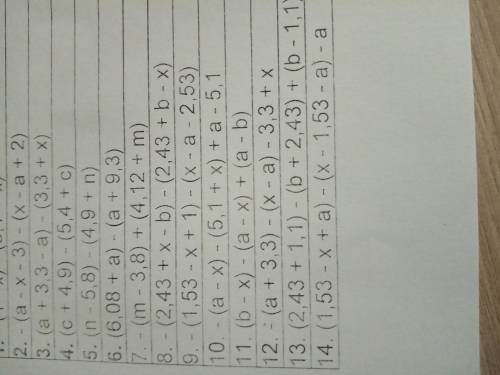 1.
2. - (a - x - 3) - (x - a + 2)
3. (a + 3,3 - a) - (3,3 + x)
4. (c + 4,9) - (5,4 + c)
5. (n - 5,8) - (4,9 + n)
6. (6,08 + a) - (a + 9,3)
7. - (m - 3,8) + (4,12 + m)
8. - (2,43 + x - b) - (2,43 + b - x)
9. - (1,53 - x + 1) - (x - a - 2,53)
10. - (a - x) - (5,1 + x) + a - 5,1
11. (b - x) - (a - x) + (a - b)
12. - (a + 3,3) - (x - a) - 3,3 + x
13. (2,43 + 1,1) - (b + 2,43) + (b - 1,1)
14. (1,53 - x + a) - (x - 1,53 - a) - a